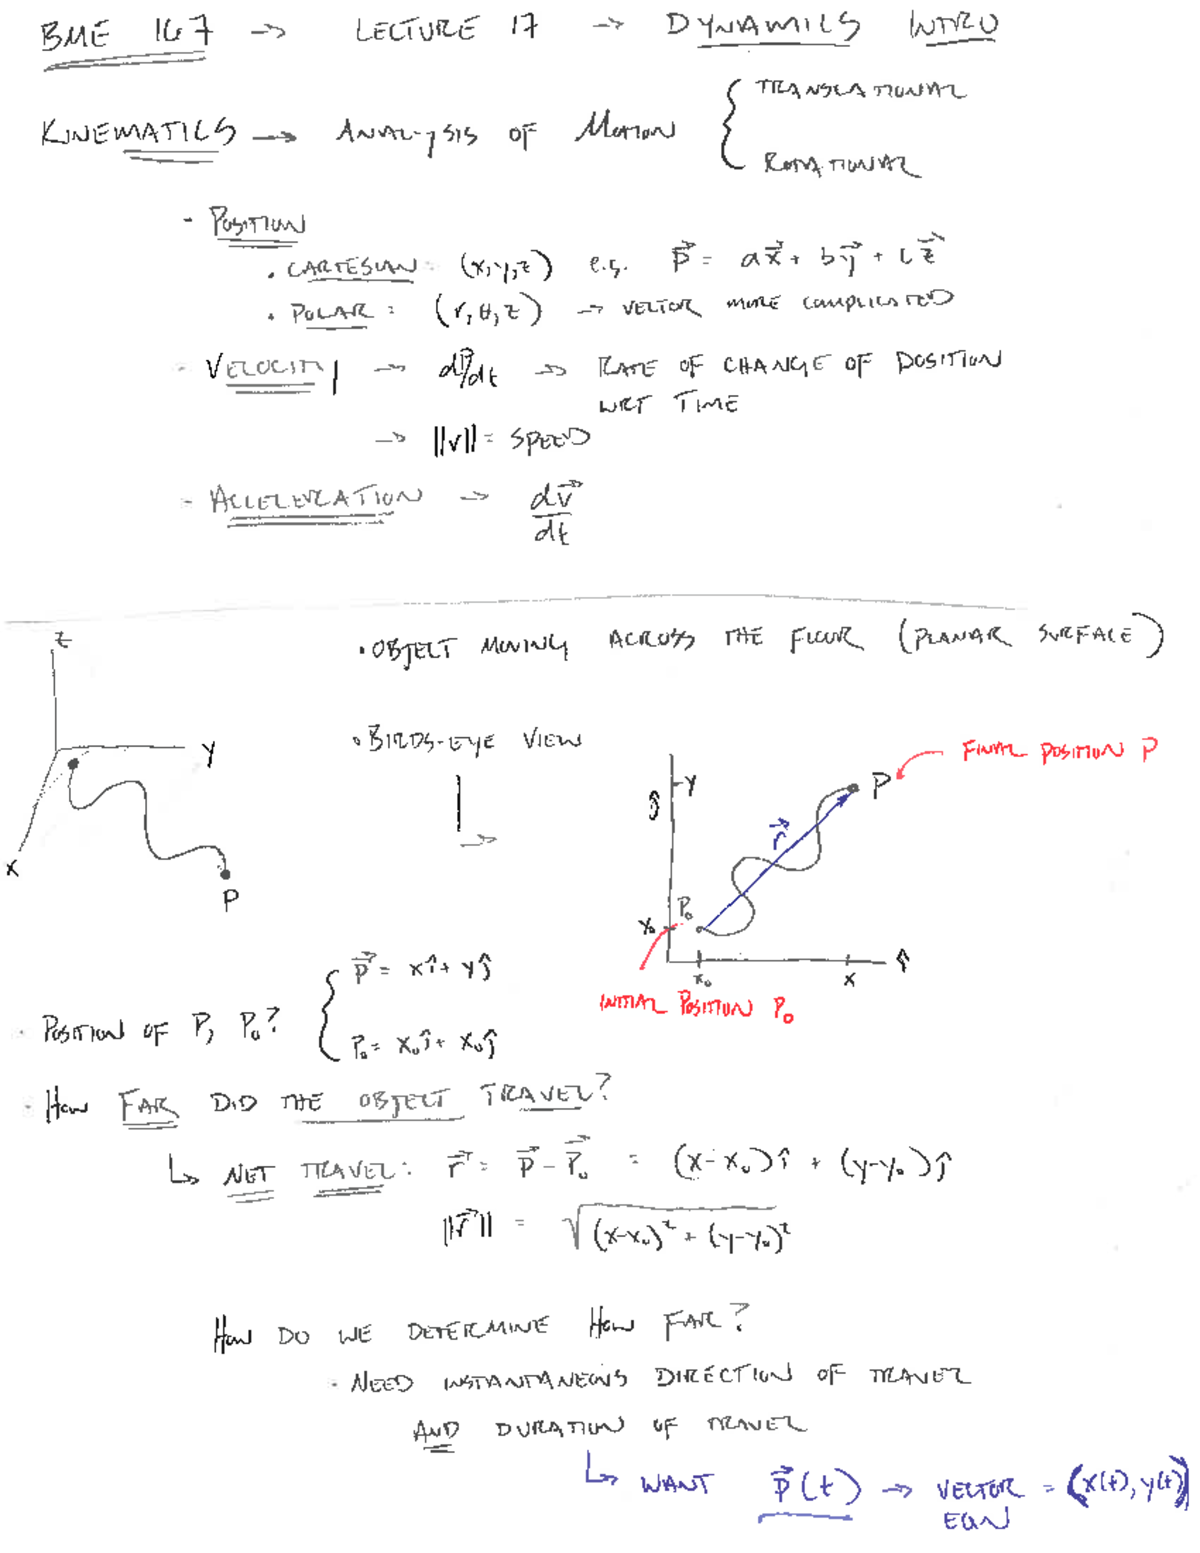 BME 167 → LECTURE 17 → DYNAMICS INTRO
KINEMATICS → ANALYSIS OF MOTION { TRANSLATIONAL
ROTATIONAL
- POSITION
• CARTESIAN: (x,y,z) e.g. p⃗ = ax⃗ + by⃗ + cz⃗
• POLAR: (r,θ,z) → VECTOR MORE COMPLICATED
- VELOCITY → dp⃗/dt → RATE OF CHANGE OF POSITION
WRT TIME
→ ||v|| = SPEED
- ACCELERATION → dv⃗/dt
• OBJECT MOVING ACROSS THE FLOOR (PLANAR SURFACE)
z
y
x
P
• BIRDS-EYE VIEW
FINAL POSITION P
ĵ
y
P
r⃗
P₀
y₀
x₀
x
î
INITIAL POSITION P₀
• POSITION OF P, P₀? { p⃗ = xî + yĵ
P⃗₀ = x₀î + x₀ĵ
• HOW FAR DID THE OBJECT TRAVEL?
↳ NET TRAVEL: r⃗ = p⃗ - P⃗₀ = (x-x₀)î + (y-y₀)ĵ
||r⃗|| = √(x-x₀)² + (y-y₀)²
HOW DO WE DETERMINE HOW FAR?
• NEED INSTANTANEOUS DIRECTION OF TRAVEL
AND DURATION OF TRAVEL
↳ WANT p⃗(t) → VECTOR = (x(t), y(t))
EQN